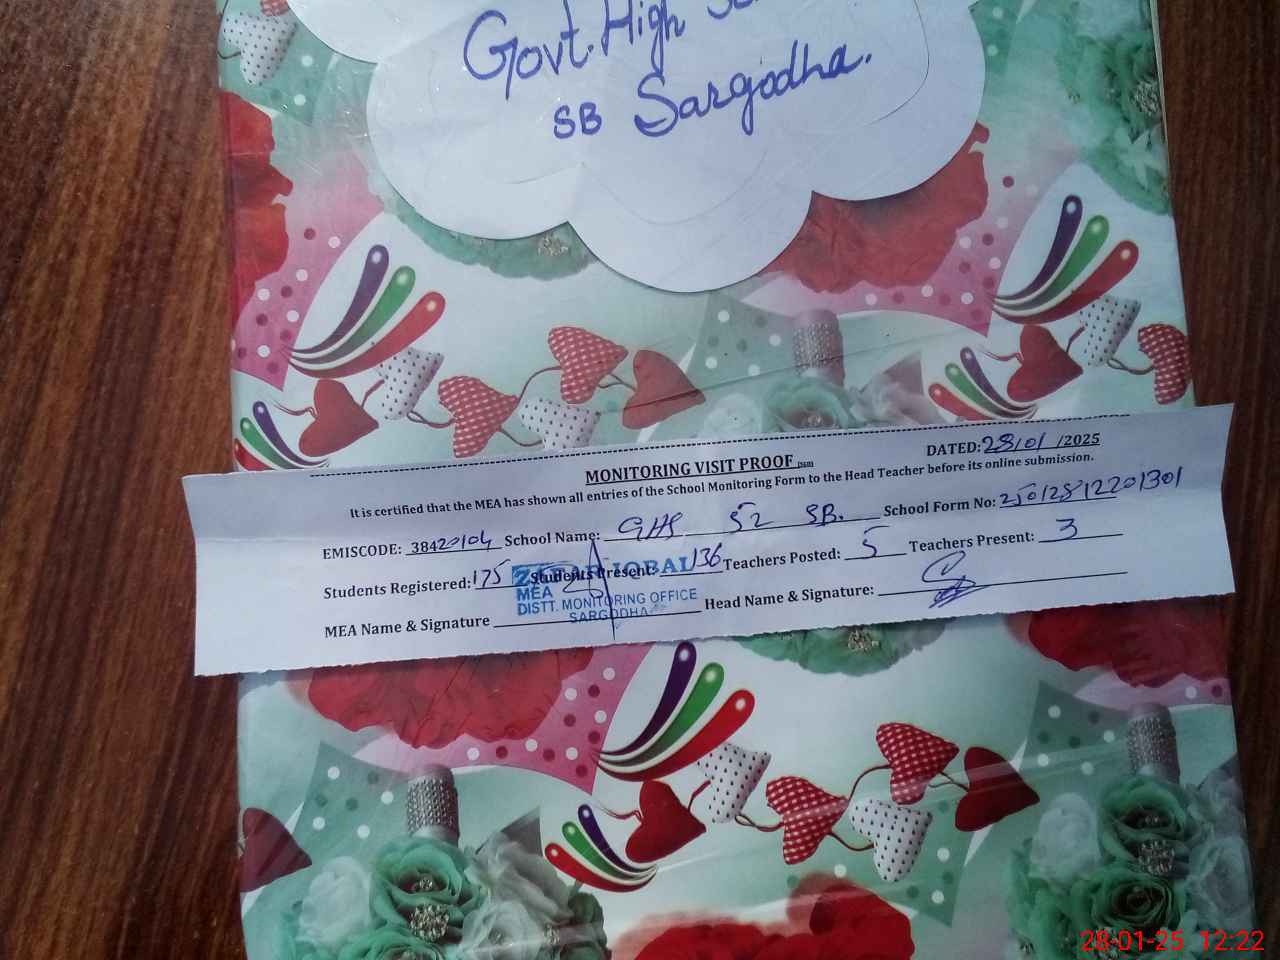 Govt. High
SB Sargodha.
MONITORING VISIT PROOF
DATED: 28/01/2025
It is certified that the MEA has shown all entries of the School Monitoring Form to the Head Teacher before its online submission.
EMISCODE: 38420104 School Name: GHS 52 SB. School Form No: 25012812201301
Students Registered: 175 Students Present: 136 Teachers Posted: 5 Teachers Present: 3
ZAFAR IQBAL
MEA
DISTT. MONITORING OFFICE
SARGODHA
MEA Name & Signature Head Name & Signature:
28-01-25 12:22